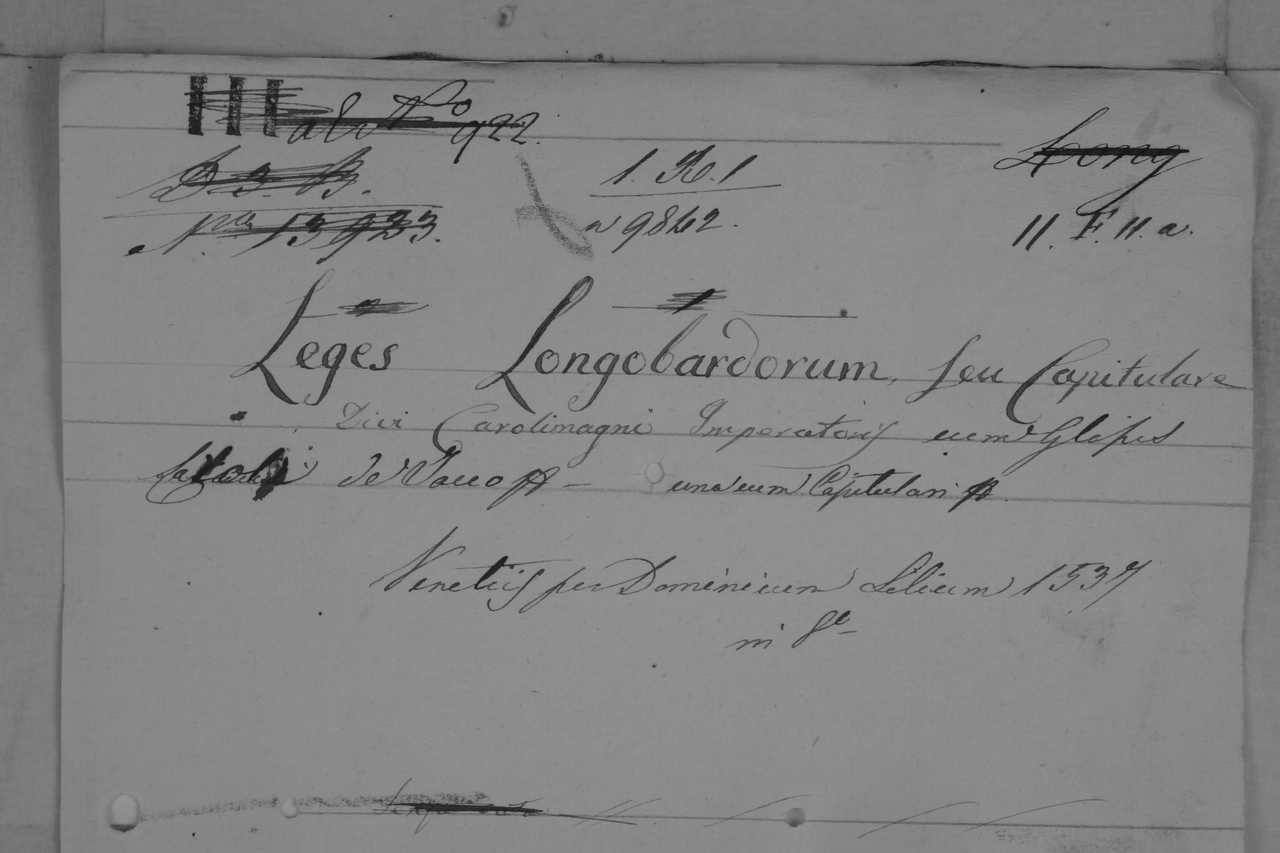 III
No 922.
D. 3. B.
1. R. 1
Long
No 13923.
9842.
11. F. 11. a.
Leges Longobardorum, seu Capitulare
Divi Carolimagni Imperatoris cum Glosis
de
una cum Capitulari
Venetiis per Dominicum Lilium 1537
in 8o